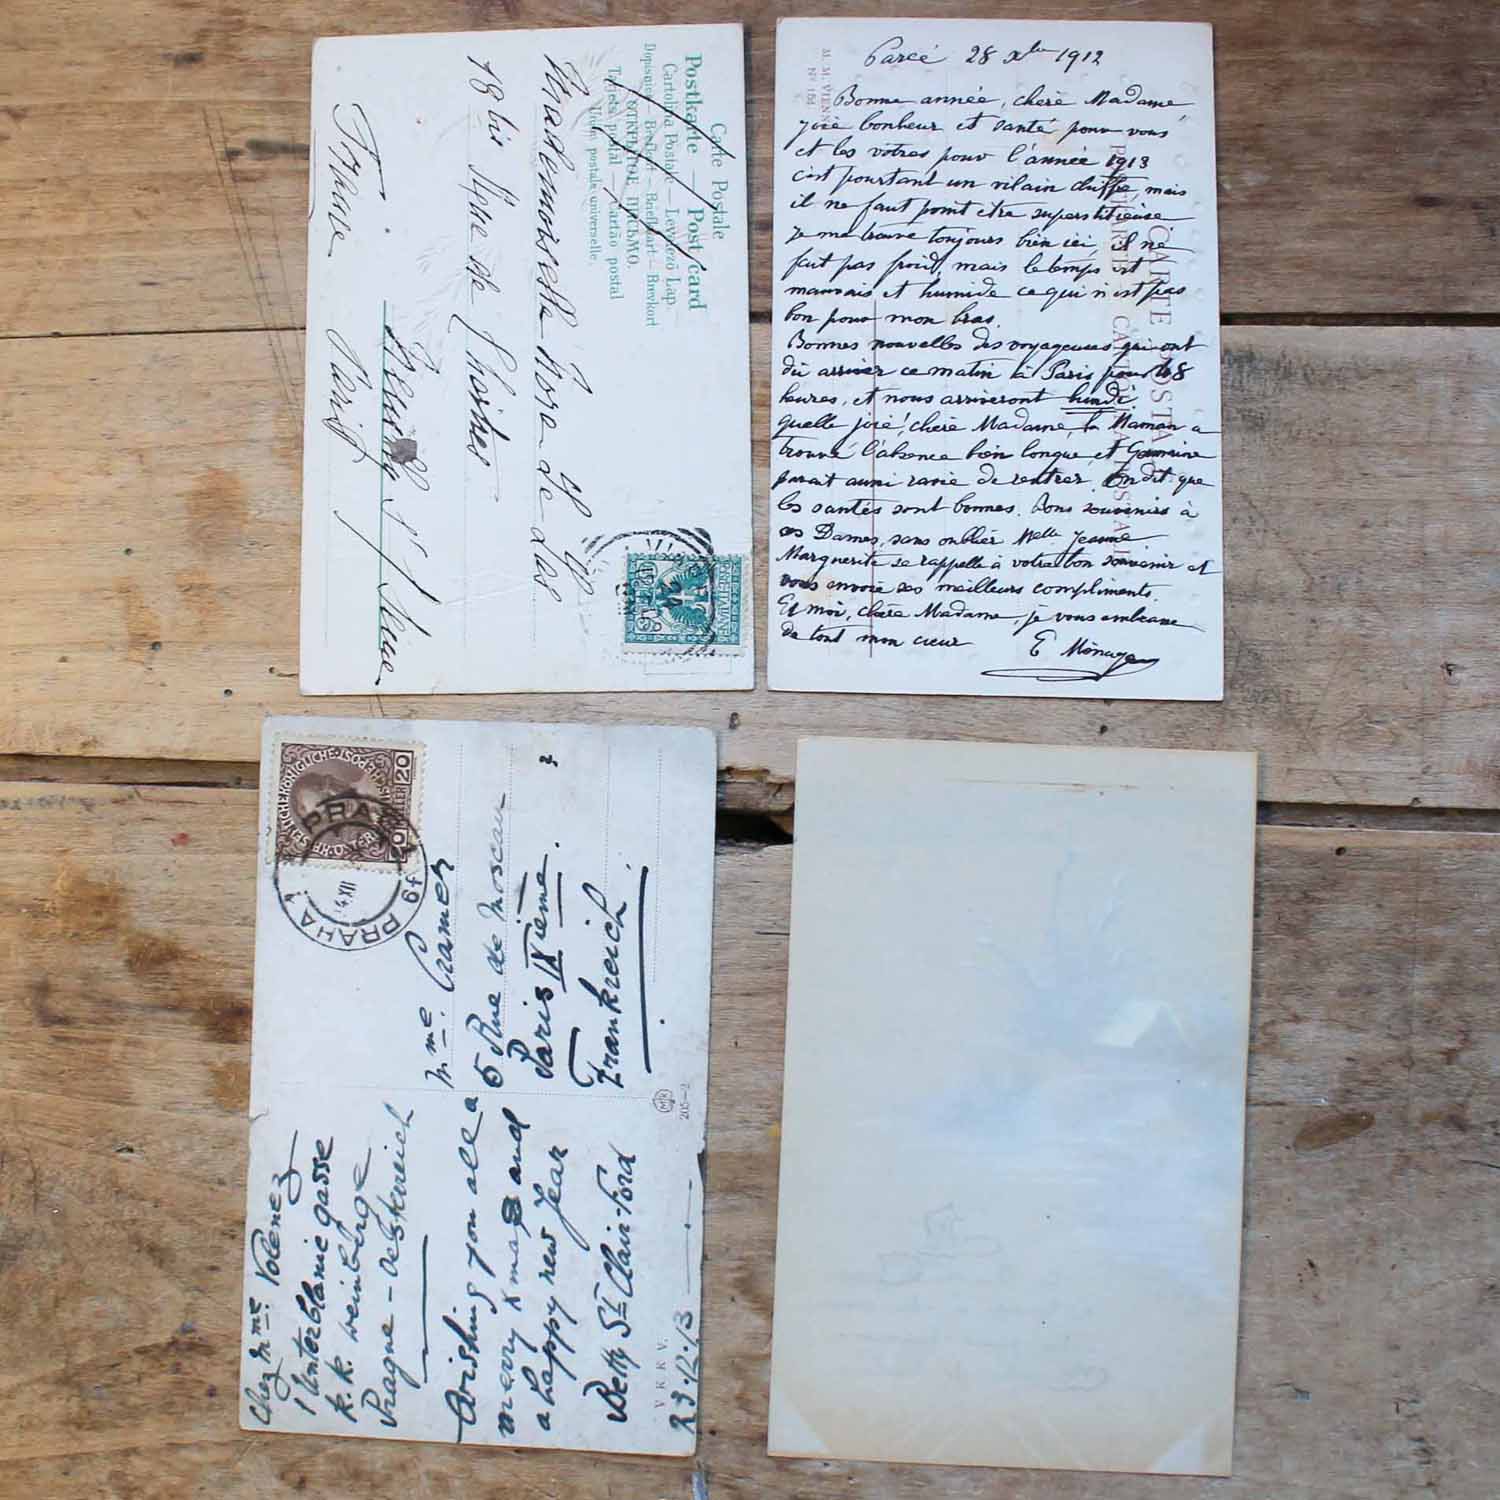 Carte Postale
Postkarte — Post card
Cartolina Postale — Levelező Lap.
Dopisnice — Briefkaart — Brevkort
ОТКРЫТОЕ ПИСЬМО.
Tarjeta postal — Cartão postal
Union postale universelle.
Mademoiselle
18 bis
France Paris
M. M. VIENNE
Nº 184
CARTE POSTALE
Parcé 28 Xbre 1912
Bonne année, chère Madame
joie bonheur et santé pour vous
et les vôtres pour l'année 1913
c'est pourtant un vilain chiffre, mais
il ne faut point être superstitieuse
je me trouve toujours bien ici, il ne
fait pas froid, mais le temps est
mauvais et humide ce qui n'est pas
bon pour mon bras.
Bonnes nouvelles des voyageuses qui ont
dû arriver ce matin à Paris pour 48
heures, et nous arriveront lundi
quelle joie! chère Madame, la Maman a
trouvé l'absence bien longue et Germaine
parait aussi ravie de rentrer. On dit que
les santés sont bonnes. Bons souvenirs à
ces Dames, sans oublier Melle Jeanne
Marguerite se rappelle à votre bon souvenir et
vous envoie ses meilleurs compliments.
Et moi, chère Madame, je vous embrasse
de tout mon cœur E Ménage
PRAHA
20 HELLER 20
Chez Mme. Volenez
1 Unterblanic gasse
k. k. weinberge
Prague - Oesterreich
Wishing you all a
merry Xmas and
a happy new Year
Betty St Clair-Ford
23.12.13
V K K V.
205-2
Mme. Cramer
5 Rue de Moscou ?
Paris IX ième.
Frankreich.